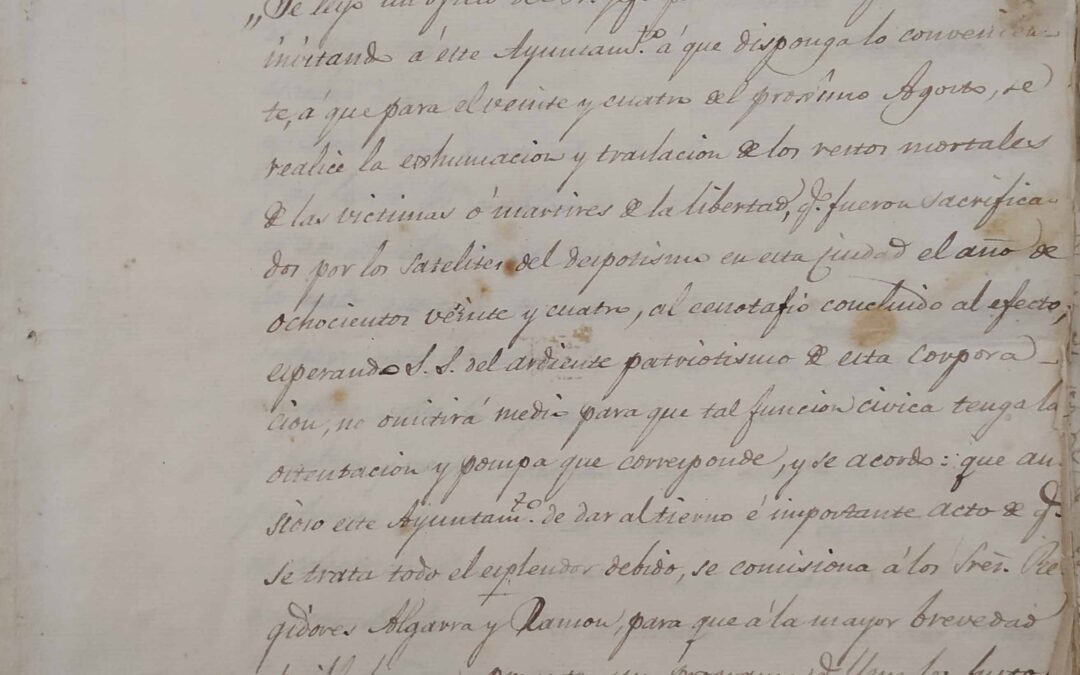 „Se leyó un oficio del Sr. Gefe p
invitando á éste Ayuntam.to á que disponga lo convenien-
te, á que para el veinte y cuatro del prosimo Agosto, se
realice la exhumacion y traslacion de los restos mortales
de las victimas ó martires de la libertad, q.e fueron sacrifica-
dos por los sateliter del despotismo en esta Ciudad el año de
ochocientos véinte y cuatro, al cenotafio concluido al efecto;
esperando S. S. del ardiente patriotismo de esta Corpora-
cion, no omitirá medio para que tal funcion civica tenga la
ostentacion y pompa que corresponde, y se acordó: que an-
sioso este Ayuntam.to de dar al tierno é importante acto de q.e
se trata todo el esplendor debido, se comisiona á los Sres. Re-
gidores Algarra y Ramon, para que á la mayor brevedad
un programa